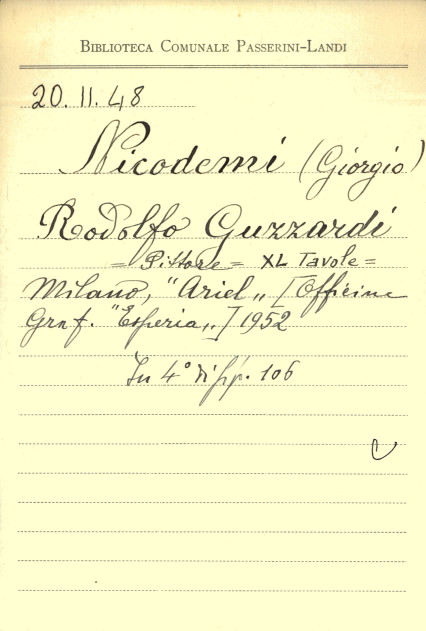 BIBLIOTECA COMUNALE PASSERINI-LANDI
20. II. 48
Nicodemi (Giorgio)
Rodolfo Guzzardi
= Pittore = XL Tavole =
Milano, "Ariel„ [Officine
Graf. "Esperia„] 1952
In 4° di pp. 106
C